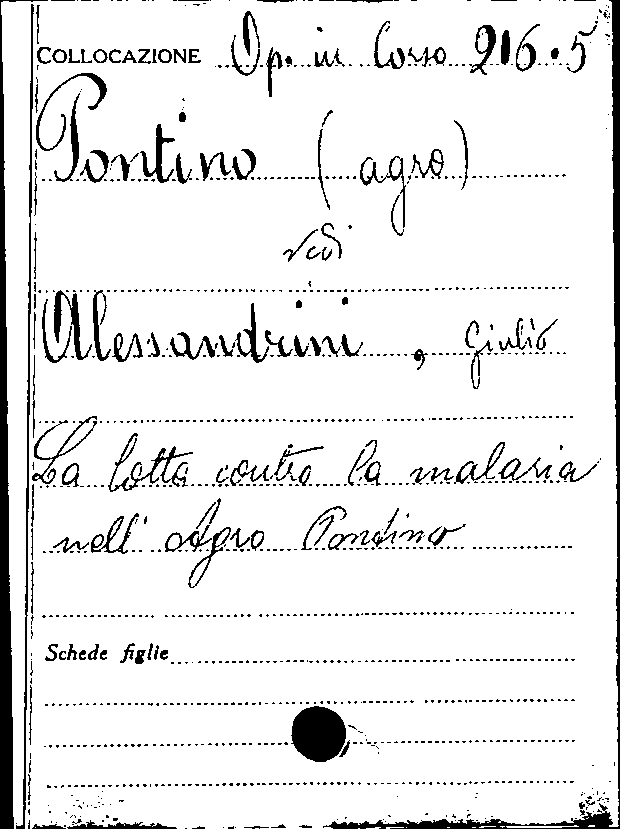 COLLOCAZIONE Op. in Corso 216.5
Pontino (agro)
vedi
Alessandrini, Giulio
La lotta contro la malaria
nell' Agro Pontino
Schede figlie